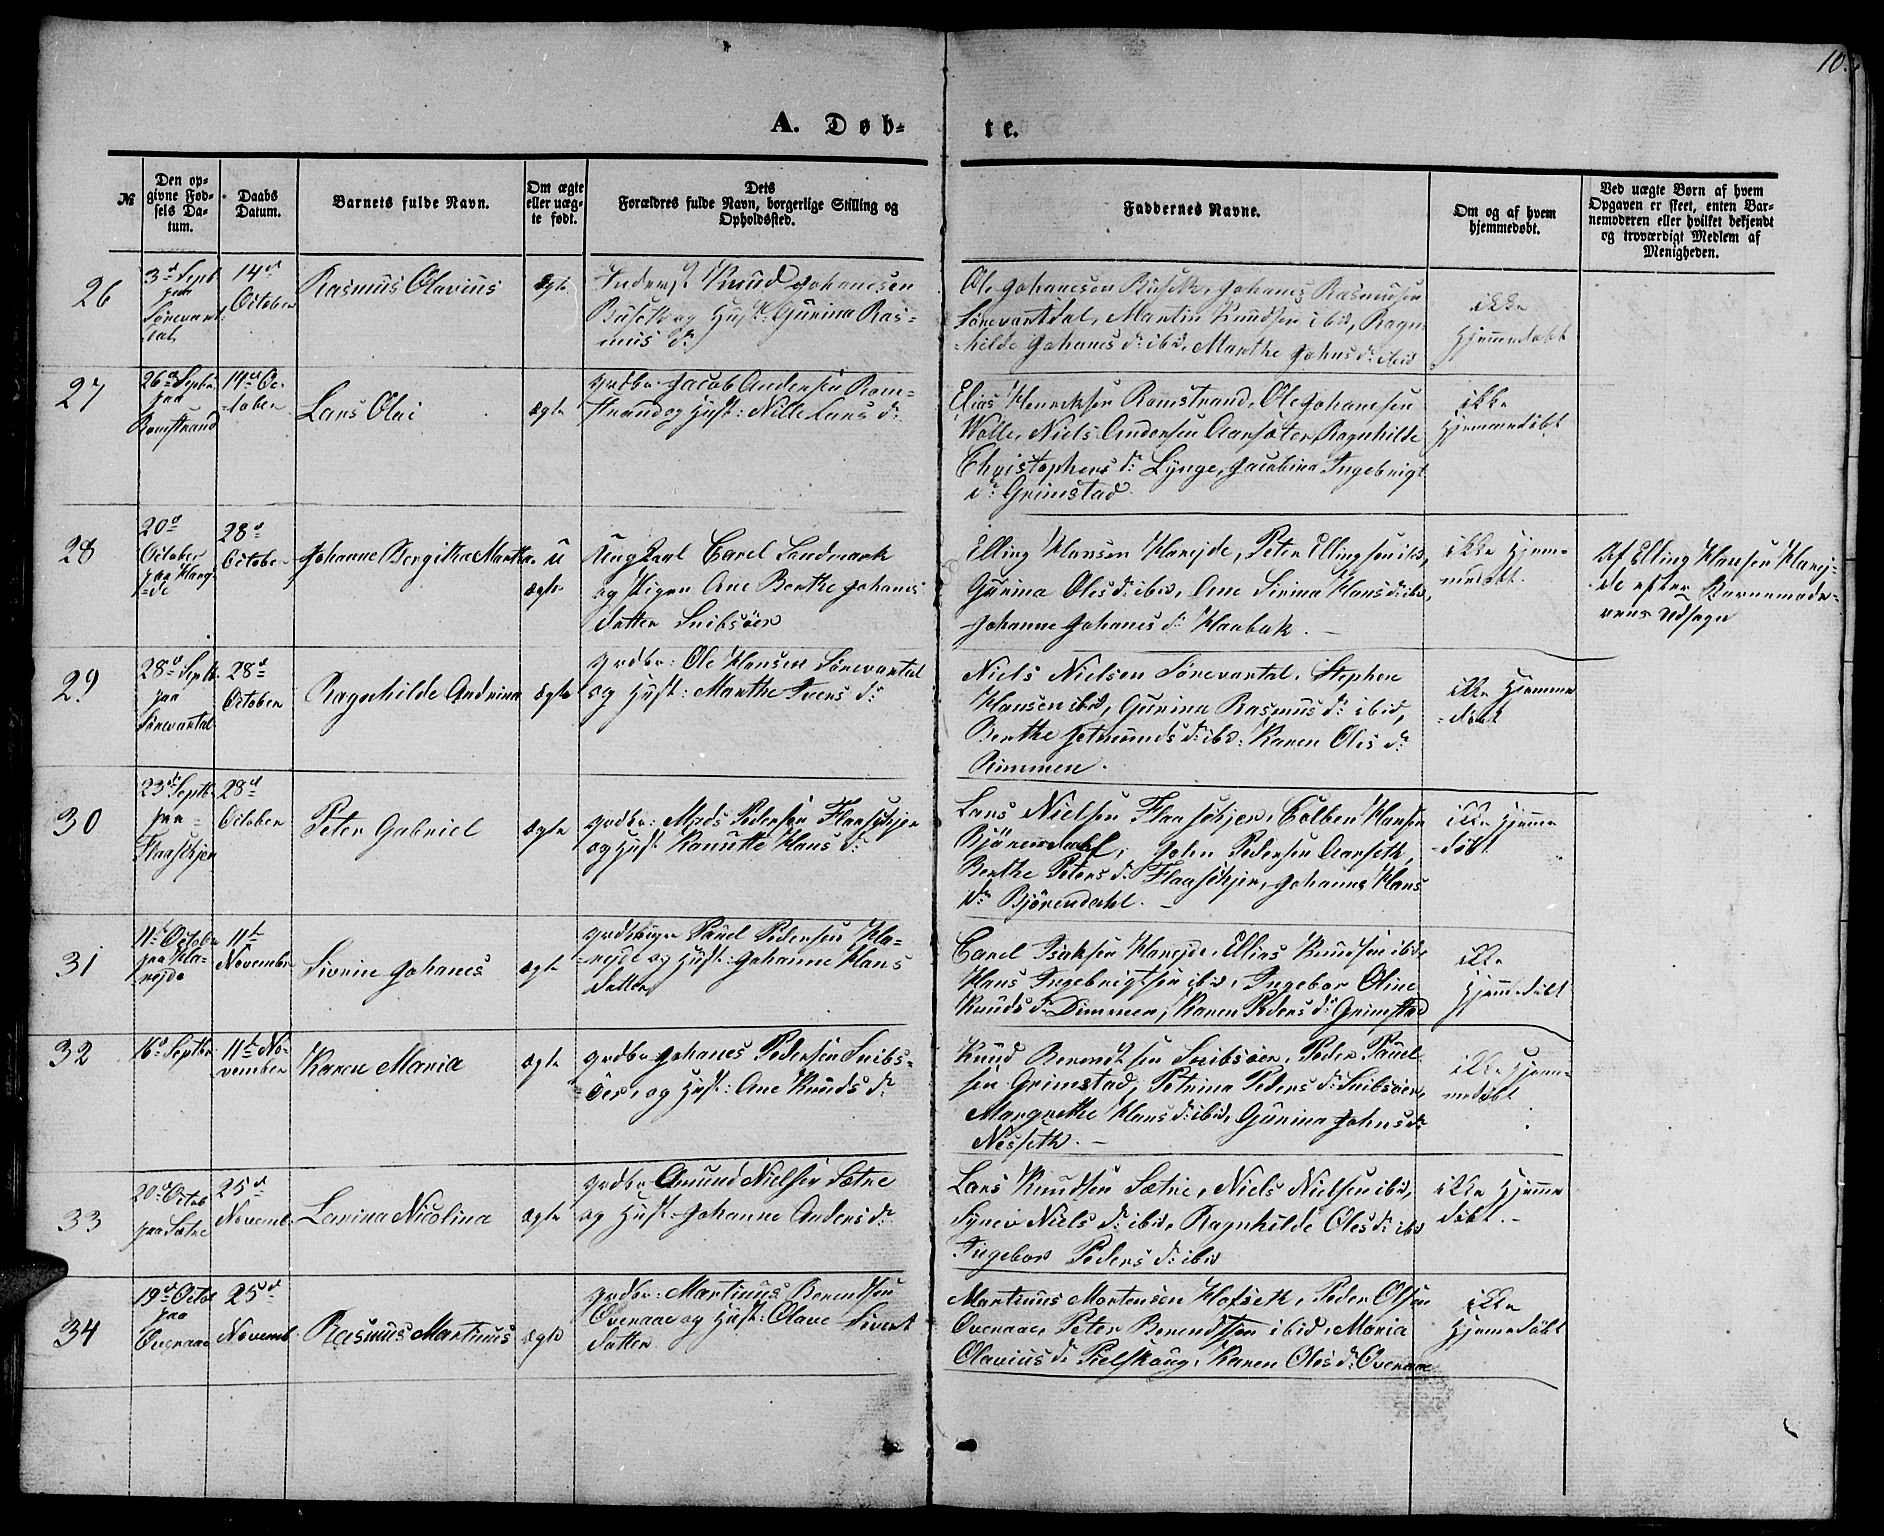 10.
A. Døb-
te.
№
Den op-
givne Fød-
sels Da-
tum.
Daabs
Datum.
Barnets fulde Navn.
Om ægte
eller uæg-
te født.
Dets
Forældres fulde Navn, borgerlige Stilling og
Opholdssted.
Faddernes Navne.
Om og af hvem
hjemmedøbt.
Ved uægte Børn af hvem
Opgaven er skeet, enten Bar-
nemoderen eller hvilket bekjendt
og troværdigt Medlem af
Menigheden.
26
3d Sept
paa
14d
October
Rasmus Olavius
ægte
Inderst Knud Johanesen
Buseth og Hust: Gurina Ras-
mus dr
Ole Johanesen Buseth, Johanes Rasmusen
Martin Knudsen ibid, Ragn-
hilde Johanes dr ibid, Marthe Johns dr ibid
ikke
Hjemmedøbt
27
26d Septbr
paa
Romstrand
14d Oc-
tober
Lars Olai
ægte
Grdbr Jacob Andersen Rom-
strand og Hust: Nille Lars dr
Elias Henriksen Romstrand, Ole Johanesen
Wolle, Niels Andersen Aarsæter, Ragnhilde
Christophers dr Lynge, Jacobina Ingebrigt
dr Grimstad
ikke
Hjemmedøbt
28
20d
October
paa Harej-
de
28d
October
Johanne Bergitha Marthe
u
ægte
Ungkarl Carel Sandmark
og Pigen Ane Berthe Johanes
datter Snibsöer
Elling Hansen Harejde, Peter Ellingsen ibid,
Gurina Oles dr ibid, Ane Sirina Hans dr ibid,
Johanne Johanes dr Haabak. —
ikke Hjem-
medøbt.
Af Elling Hansen Harej-
de efter Barnemode-
rens Udsagn
29
28d Septb
paa
Sörevartal
28d
October
Ragnhilde Andrina
ægte
Grdbr: Ole Hansen Sörevartal
og Hust: Marthe Ivers dr
Niels Nielsen Sörevartal, Stephen
Hansen ibid, Gurina Rasmus dr ibid,
Berthe Jetmunds dr ibid: Karen Oles dr
Dimmen.
ikke Hjemme
-døbt
30
23d Septb.
paa
Flaaschjer
28d
October
Peter Gabriel
ægte
Grdbr: Mads Pedersen Flaaschjer
og Hust Kanutte Hans dr
Lars Nielsen Flaaschjer, Colben Hansen
Björnendahl, John Pedersen Aarseth,
Berthe Peters dr Flaaschjer, Johanne Hans
dr Björnendahl. —
ikke Hjemme
-døbt
31
11t Octobr
paa Ha-
rejde
11t
Novembr
Sivrin Johanes
ægte
Grdbruger Pauel Pedersen Ha-
rejde og Hust: Johanne Hans
datter
Carel Isaksen Harejde, Ellias Knudsen ibid,
Hans Ingebrigtsen ibid, Ingebor Oline
Knuds dr Dimmen, Karen Peders dr Grimstad
ikke
Hjemmedøbt
32
16d Septbr
11t No-
vember
Karen Maria
ægte
Grdbr Johanes Pedersen Snibs-
öer, og Hust: Ane Knuds dr
Knud Berendtsen Snibsöer, Peder Pauel-
sen Grimstad, Petrina Peders dr Snibsöer,
Margrethe Hans dr ibid, Gurina Johns dr
Nesseth. —
ikke Hjem-
medøbt
33
20d Octob
paa Sætre
25d
Novemb.
Lavina Nicolina
ægte
Grdbr Amund Nielsen Sætre
og Hust: Johanne Anders dr
Lars Knudsen Sætre, Niels Nielsen ibid,
Synev Niels dr ibid, Ragnhilde Oles dr ibid
Ingebor Peders dr ibid
ikke Hjemme
døbt. —
34
19d Octob
paa
Overaae
25d
Novemb.
Rasmus Martinus
ægte
Grdbr: Martinus Berendtsen
Overaae og Hust: Olave Sivert
datter
Martinus Mortensen Hofseth, Peder Olsen
Overaae, Peter Berendtsen ibid, Maria
Olavius dr Pielskaug, Karen Oles dr Overaae
ikke
Hjemmedøbt